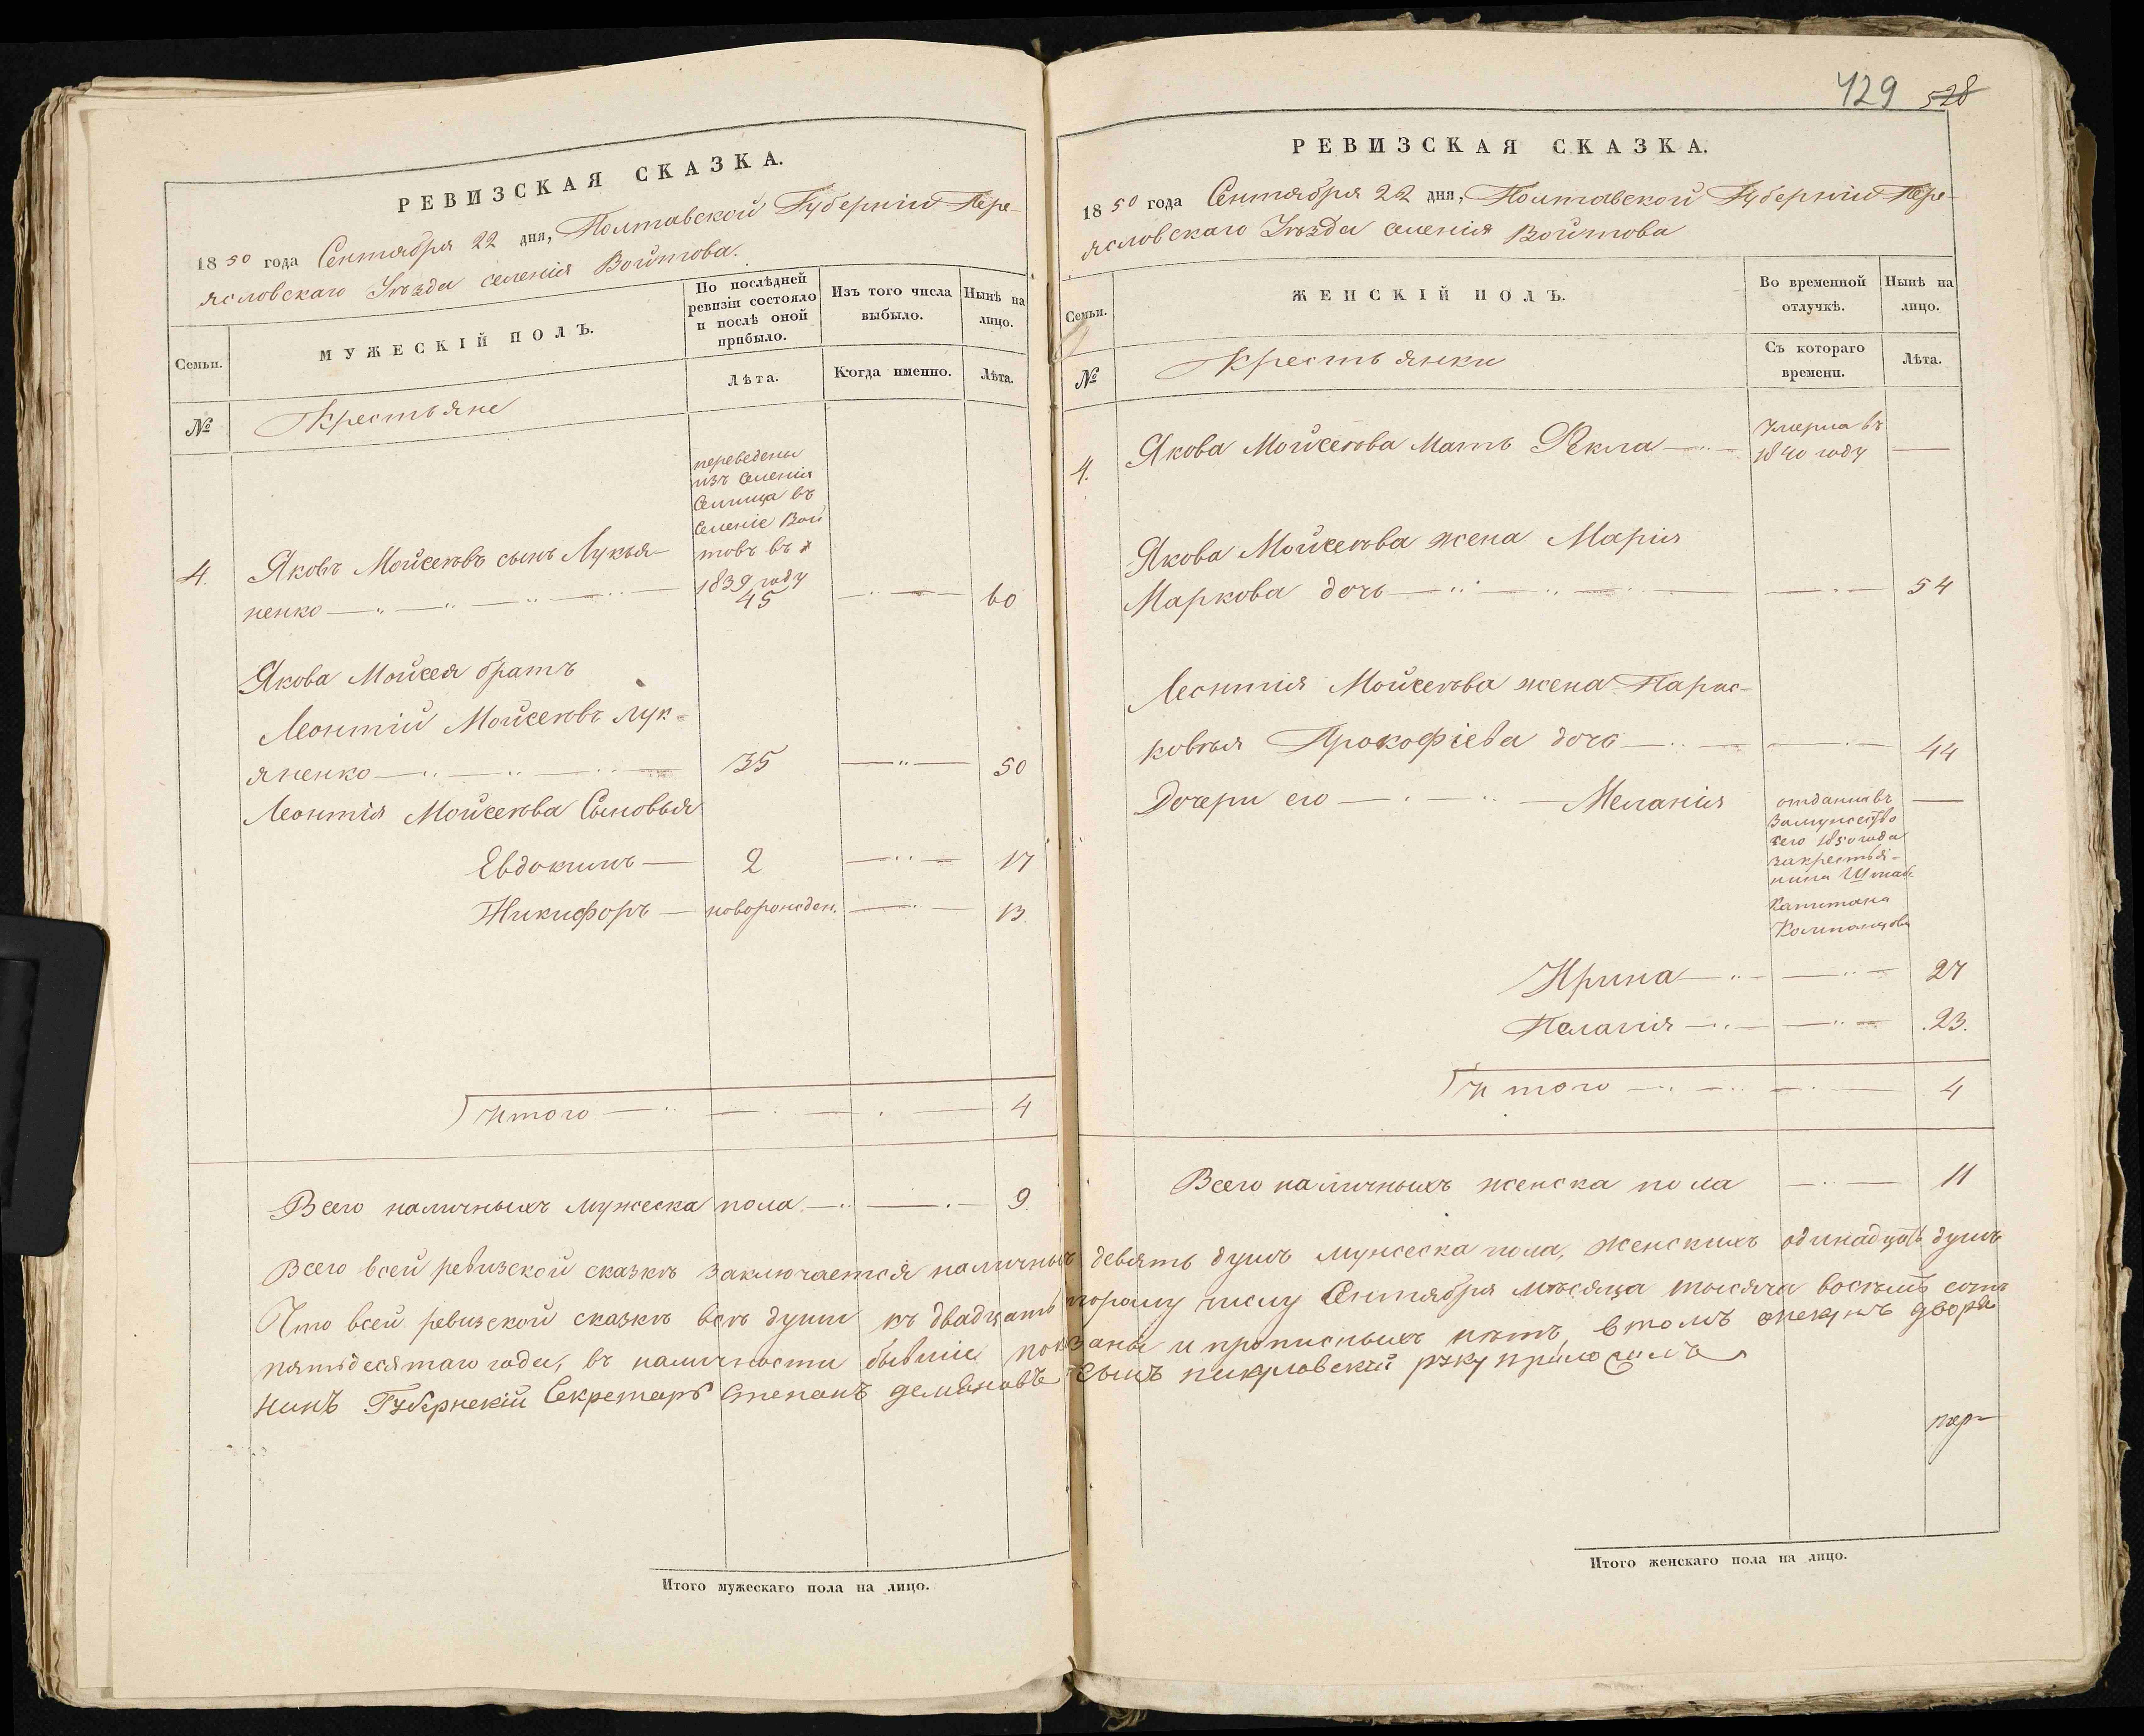 РЕВИЗСКАЯ СКАЗКА.
1850 года Сентября 22 дня, Полтавской Губерніи Пере-
ясловскаго Уѣзда селенія Войтова.
Семьи.
МУЖЕСКІЙ ПОЛЪ.
По послѣдней
ревизіи состояло
и послѣ оной
прибыло.
Изъ того числа
выбыло.
Нынѣ на
лицо.
Лѣта.
Когда именно.
Лѣта.
№
Крестьяне
переведены
изъ селенія
Селища въ
селеніе Вой
товъ въ
1839 году
4. Яковъ Мойсеювъ сынъ Лукья-
ненко 45 60
Якова Мойсея братъ
Леонтій Мойсеювъ Лук-
яненко 35 50
Леонтія Мойсеюва Сыновья
Евдокимъ 2 17
Никифоръ новорожден. 13.
Итого 4
Всего наличныхъ мужеска пола 9.
Итого мужескаго пола на лицо.
429 528
РЕВИЗСКАЯ СКАЗКА.
1850 года Сентября 22 дня, Полтавской Губерніи Пере-
ясловскаго Уѣзда селенія Войтова
Семьи.
ЖЕНСКІЙ ПОЛЪ.
Во временной
отлучкѣ.
Нынѣ на
лицо.
№
Крестьянки
Съ котораго
времени.
Лѣта.
4. Якова Мойсеюва Мать Фекла Умерла въ
1840 году
Якова Мойсеюва жена Марія
Маркова дочь 54
Леонтія Мойсеюва жена Парас-
ковія Прокофіева дочь 44
Дочери его Меланія отдана въ
замужество
сего 1850 года
за крестья-
нина Штабс
Капитана
Ирина 27
Пелагія 23.
Итого 4
Всего наличныхъ женска пола 11
Всего всей ревизской сказкѣ заключается наличныхъ девять душъ мужеска пола, женскихъ одинадцать душъ
Что всей ревизской сказкѣ всѣ души къ двадцать второму числу Сентября мѣсяца тысяча восемь сотъ
пятьдесятаго года, въ наличности бывшіе показаны и прописныхъ нѣтъ, втомъ опекунъ дворя
нинъ Губернскій Секретарь Степанъ Демяновъ Сынъ руку приложилъ
Итого женскаго пола на лицо.